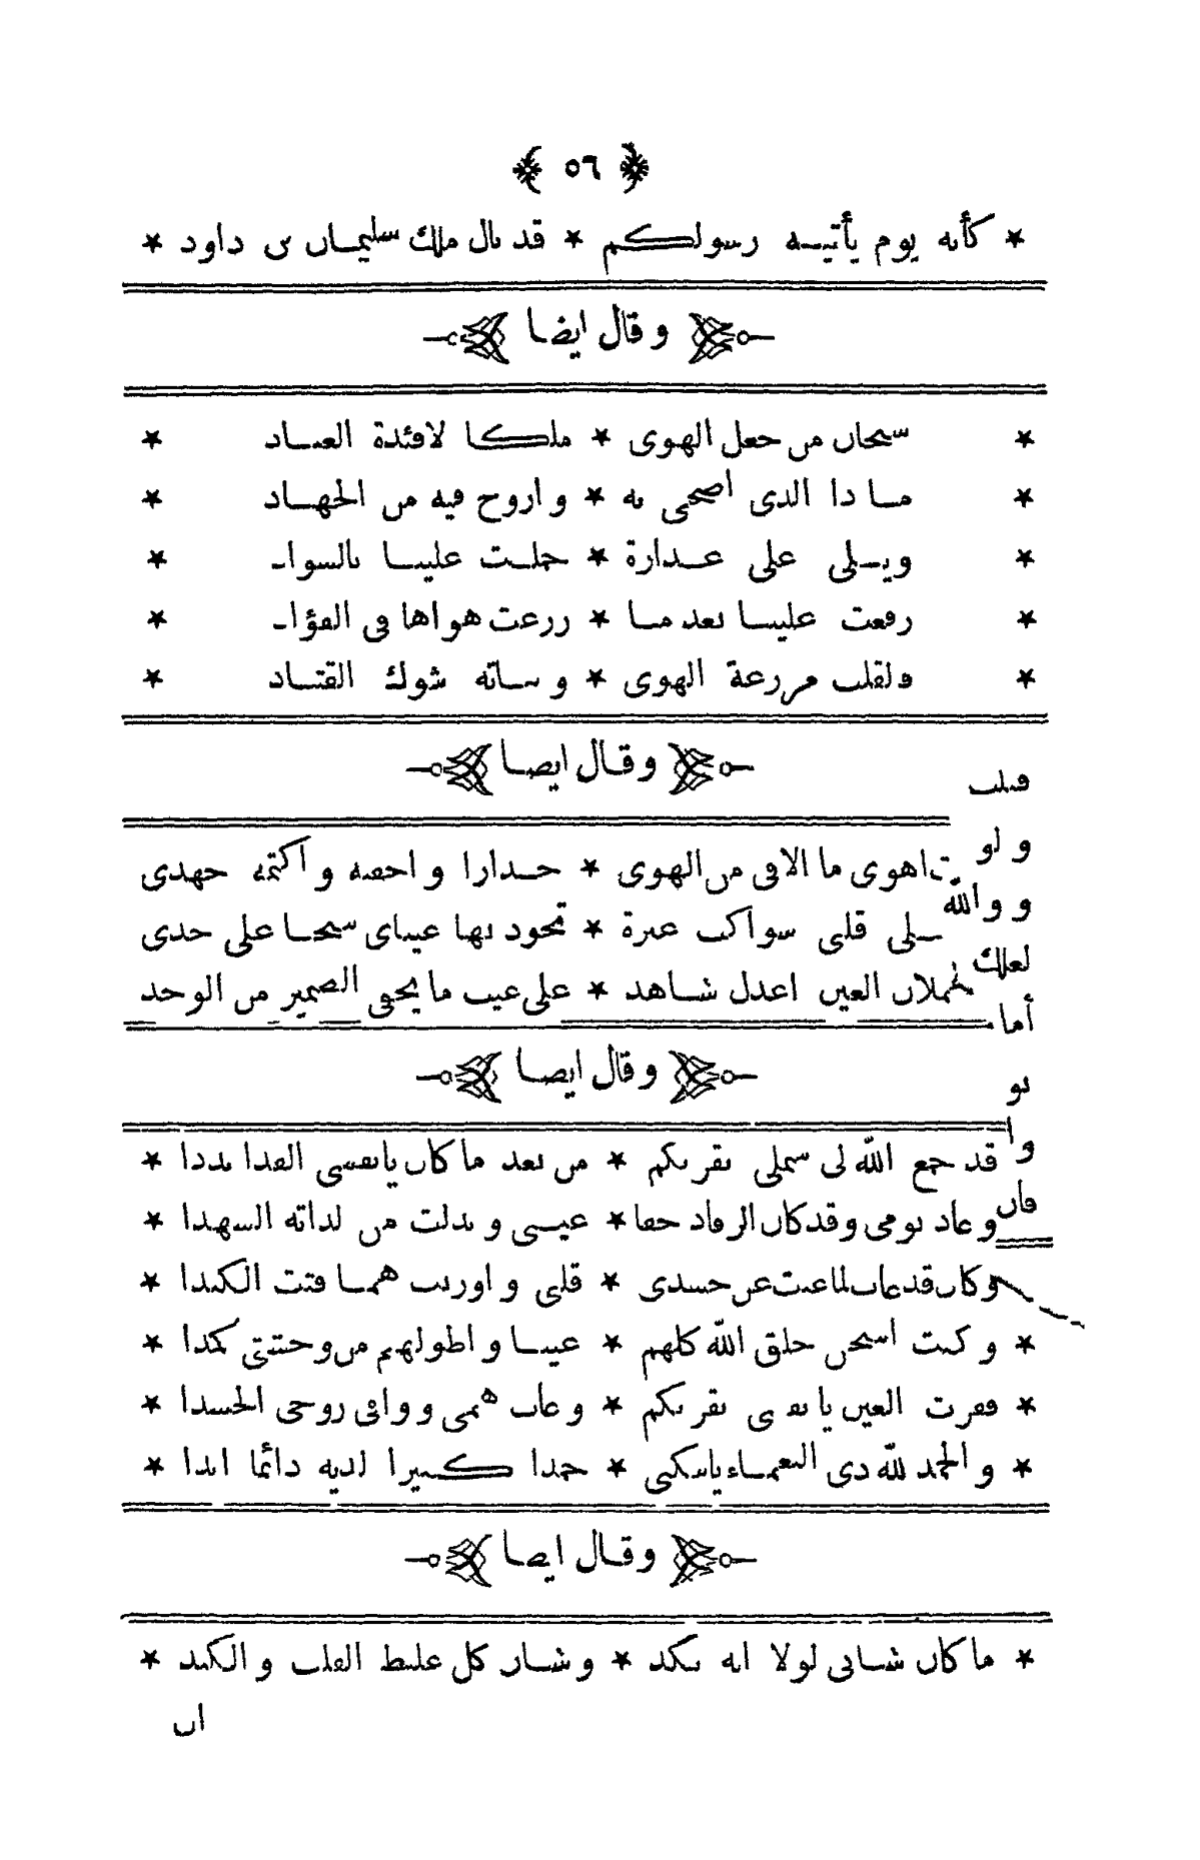 ﴿ ٥٦ ﴾
* كأنه يوم يأتيه رسولكم * قد نال ملك سليمان بن داود *
وقال ايضا
* سبحان من جعل الهوى * ملكا لافئدة العباد *
* ما ذا الذى اضحى به * و اروح فيه من الجهاد *
* ويلى على عدارة * حملت علينا بالسواـ *
* رفعت علينا بعد ما * زرعت هواها فى الفؤاـ *
* ولقلب مزرعة الهوى * و نباته شوك القتاد *
وقال ايضا
و لو
اهوى ما الاقى من الهوى * حذارا و اخفيه و اكتمه جهدى
و والله
قلبى سواكب عبرة * تجود بها عيناى سحا على خدى
لعلك
العين اعدل شاهد * على عيب ما يخفى الضمير من الوجد
أما
وقال ايضا
وا
قد جمع الله لى شملى بقربكم * من بعد ما كان يا نفسى الفدا بددا *
فان
و عاد نومى وقد كان الرقاد جفا * عينى و بدلت من لذاته السهدا *
وكان قد غاب لما غبت عن جسدى * قلبى و اورثت هما فتت الكبدا *
* و كنت اسخن خلق الله كلهم * عينا و اطولهم من وحشتى كمدا *
* فقرت العين يا نفسى بقربكم * و غاب همى و وافى روحى الجسدا *
* و الحمد لله ذى النعماء يا سكنى * حمدا كثيرا لديه دائما ابدا *
وقال ايضا
* ما كان شبابى لولا انه نكد * و شاب كل غليظ القلب و الكبد *
ان